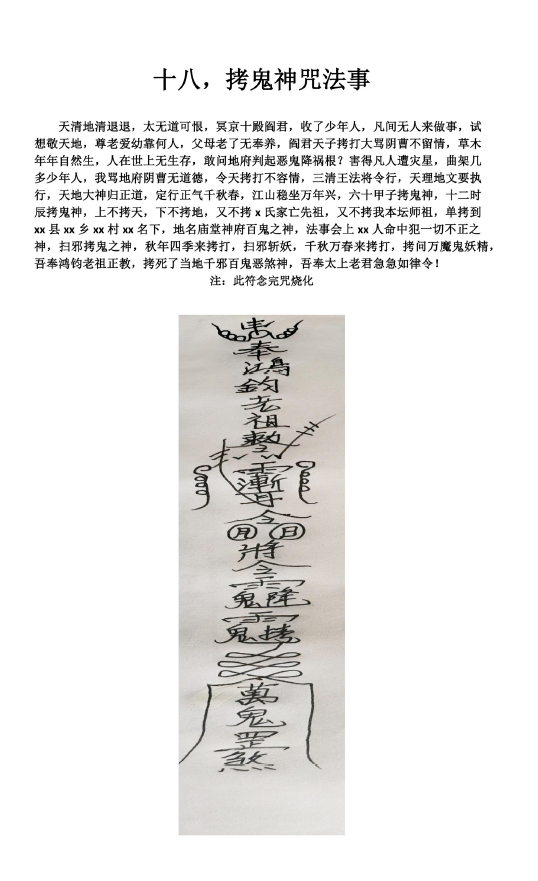 十八，拷鬼神咒法事
天清地清退退，太无道可恨，冥京十殿阎君，收了少年人，凡间无人来做事，试
想敬天地，尊老爱幼靠何人，父母老了无奉养，阎君天子拷打大骂阴曹不留情，草木
年年自然生，人在世上无生存，敢问地府判起恶鬼降祸根？害得凡人遭灾星，曲架几
多少年人，我骂地府阴曹无道德，令天拷打不容情，三清王法将令行，天理地文要执
行，天地大神归正道，定行正气千秋春，江山稳坐万年兴，六十甲子拷鬼神，十二时
辰拷鬼神，上不拷天，下不拷地，又不拷 x 氏家亡先祖，又不拷我本坛师祖，单拷到
xx 县 xx 乡 xx 村 xx 名下，地名庙堂神府百鬼之神，法事会上 xx 人命中犯一切不正之
神，扫邪拷鬼之神，秋年四季来拷打，扫邪斩妖，千秋万春来拷打，拷问万魔鬼妖精，
吾奉鸿钧老祖正教，拷死了当地千邪百鬼恶煞神，吾奉太上老君急急如律令！
注：此符念完咒烧化
奉
鴻
鈞
老
祖
敕
令
月 日
將
令
鬼 降
鬼 拷
萬
鬼
罡
煞